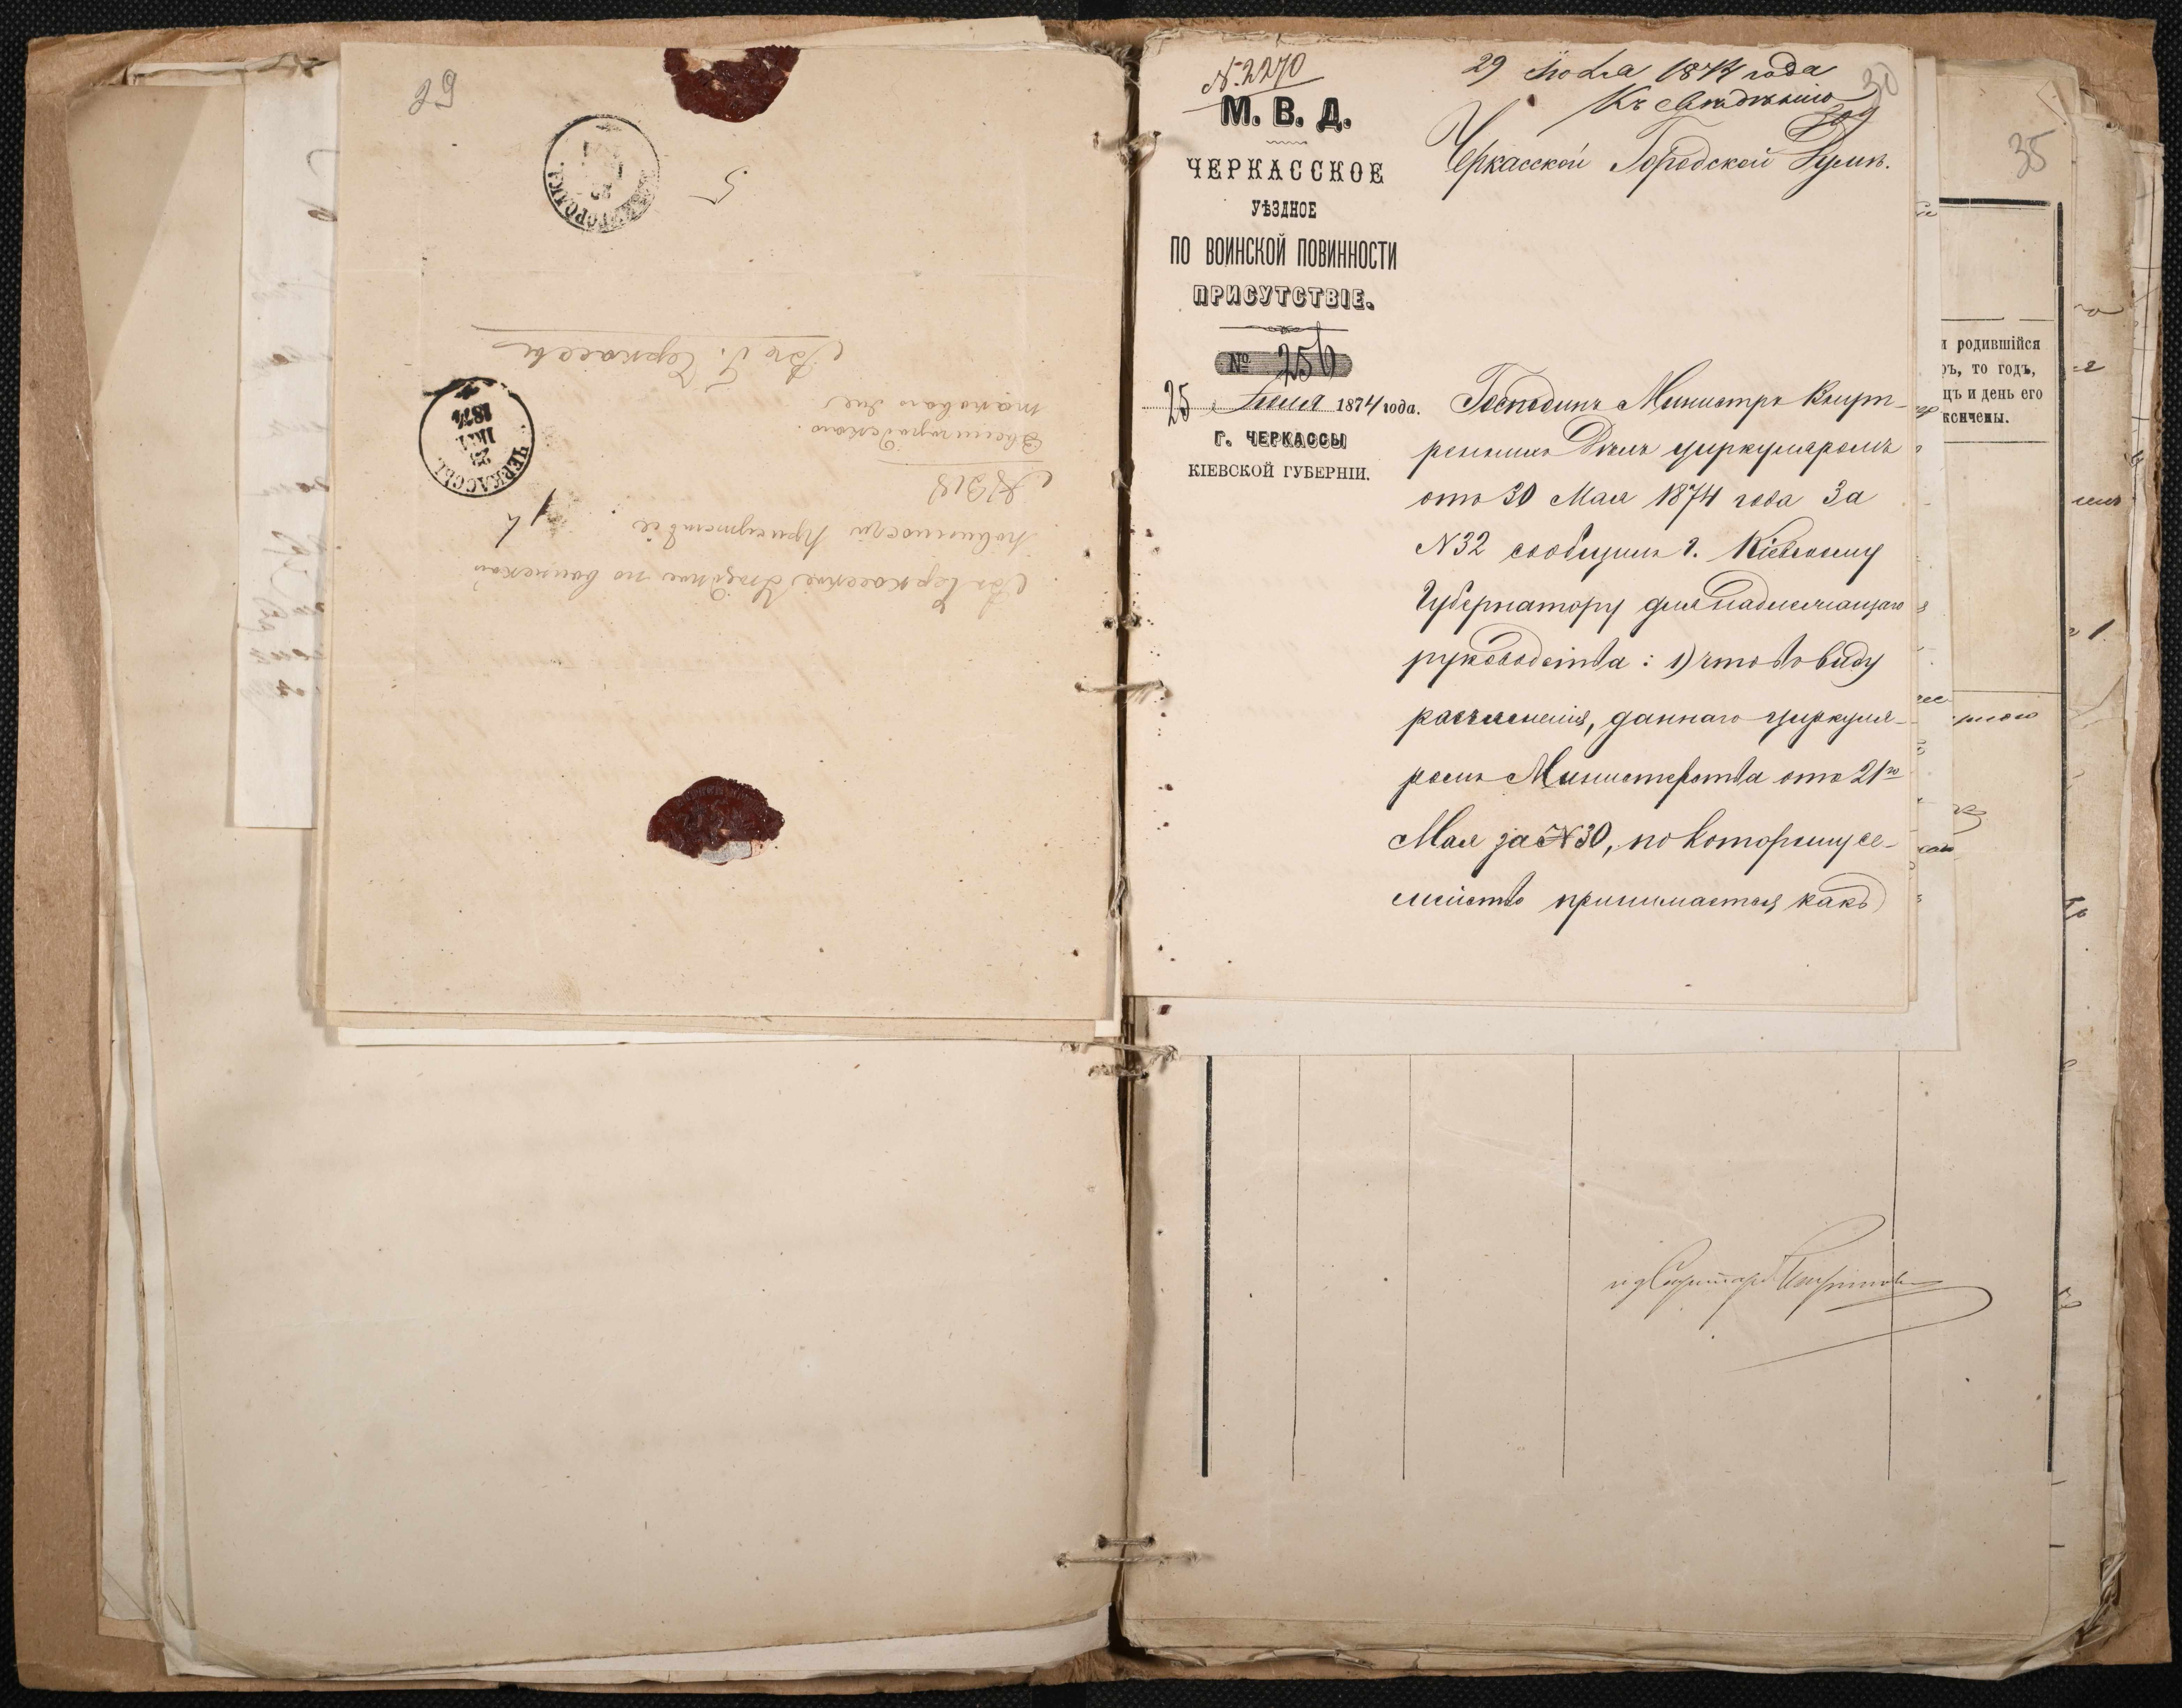 29
5
Въ Г. Черкассы
ЧЕРКАССЫ.
1874
Въ Черкасское Уѣздное по воинской
повинности Присутствіе
№ 318
Звенигородскаго
таковаго же
№ 2270
М. В. Д.
ЧЕРКАССКОЕ
УѢЗДНОЕ
ПО ВОИНСКОЙ ПОВИННОСТИ
ПРИСУТСТВІЕ.
№ 256
25 Іюня 1874 года.
Г. ЧЕРКАССЫ
КІЕВСКОЙ ГУБЕРНІИ.
29 1874 года
Къ свѣдѣнію
30
Черкасской Городской Думѣ.
Господинъ Министръ Внут-
реннихъ Дѣлъ циркуляромъ
отъ 30 Мая 1874 года За
№32 сообщилъ г. Кіевскому
Губернатору для надлежащаго
руководства: 1) что въ виду
разъясненія, даннаго циркуля-
ромъ Министерства отъ 21го
Мая за №30, по которому се-
мейство принимается какъ
35
и родившійся
ръ, то годъ,
цъ и день его
1.